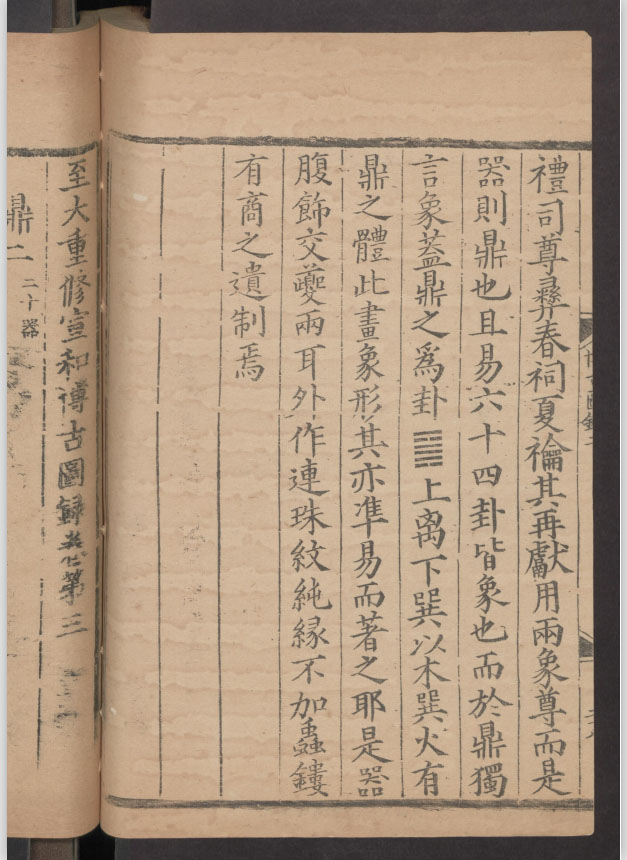 禮司尊彞春祠夏禴其再獻用兩象尊而是
器則鼎也且易六十四卦皆象也而於鼎獨
言象蓋鼎之爲卦䷱上离下巽以木巽火有
鼎之體此畫象形其亦準易而著之耶是器
腹飾交夔兩耳外作連珠紋純緣不加蟲鏤
有商之遺制焉
至大重修宣和博古圖錄卷第三
鼎二 二十器